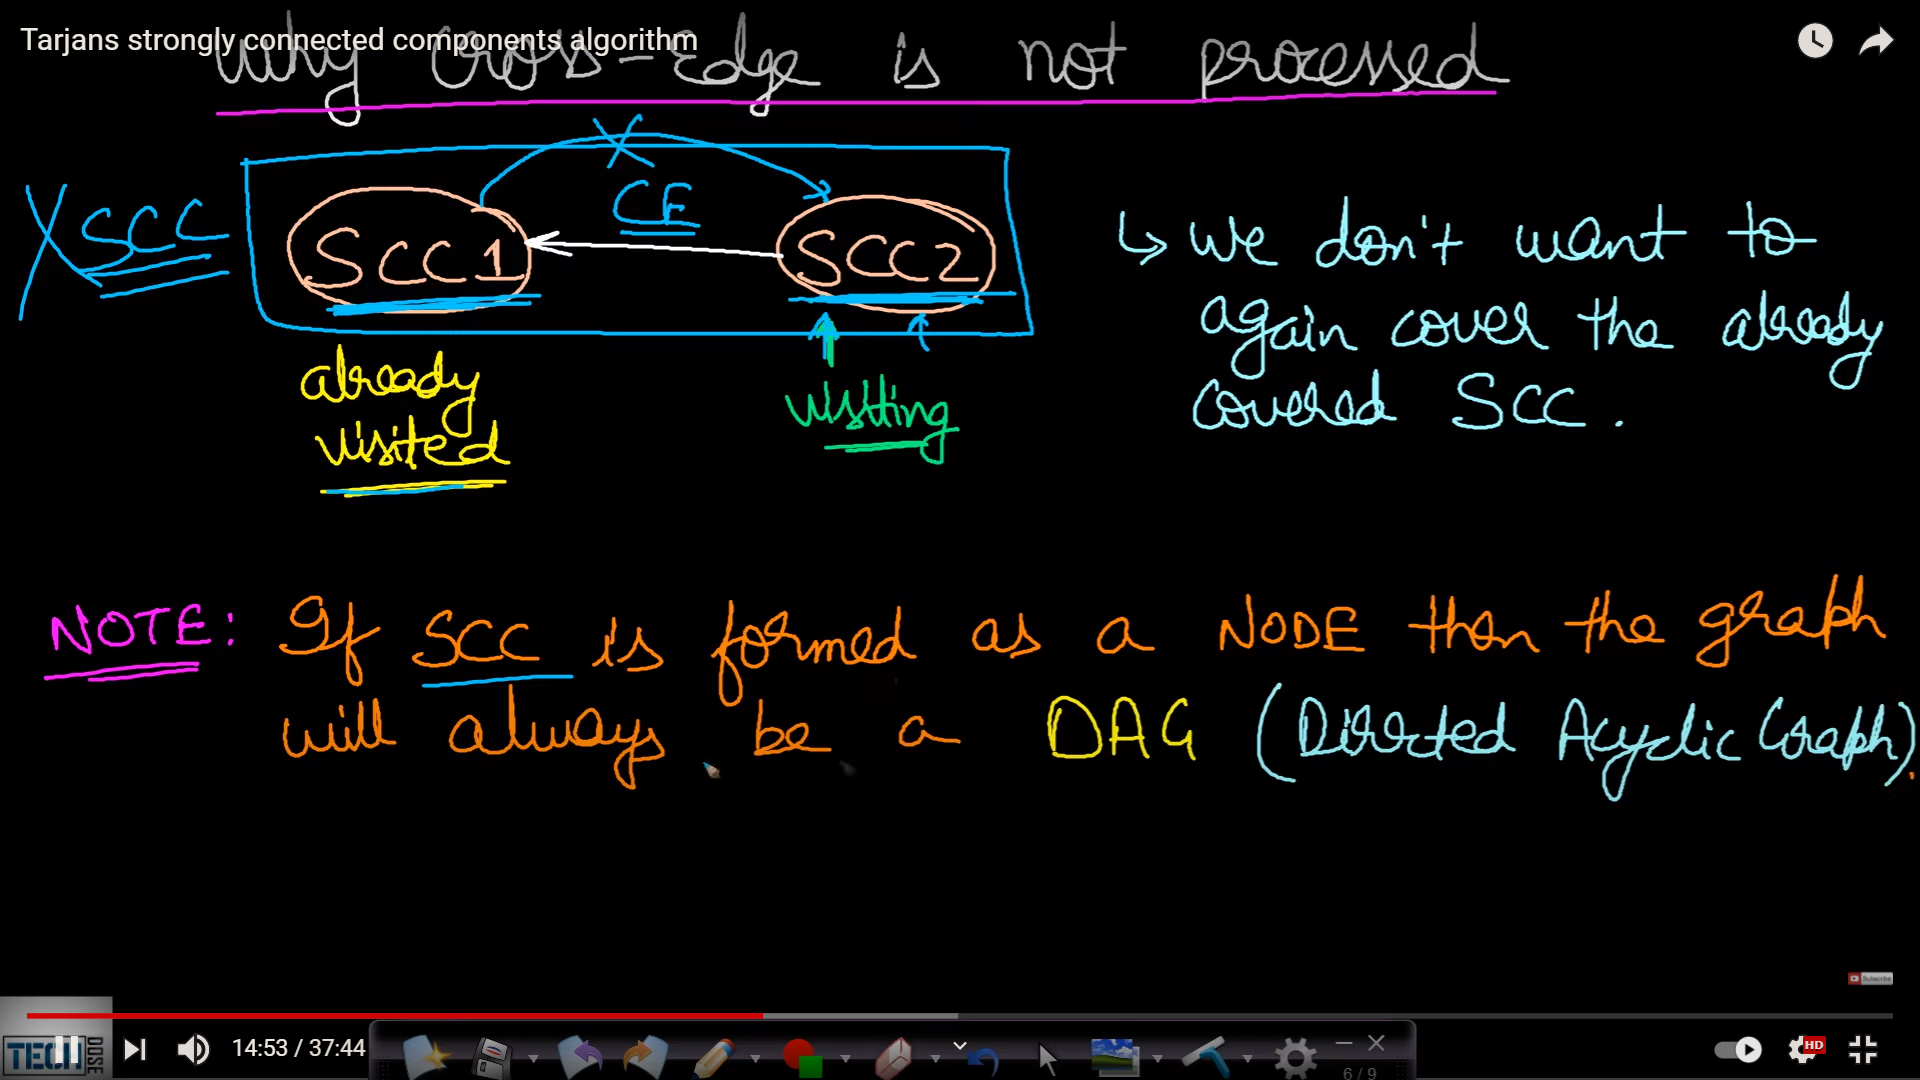 Tarjans strongly connected components algorithm
Why Cross-Edge is not processed
X SCC
X
CE
SCC1
SCC2
already
visited
visiting
↳ we don't want to
again cover the already
covered SCC.
NOTE: If SCC is formed as a NODE then the graph
will always be a DAG (Directed Acyclic Graph).
Subscribe
TECH
DOSE
14:53 / 37:44
HD
6 / 9